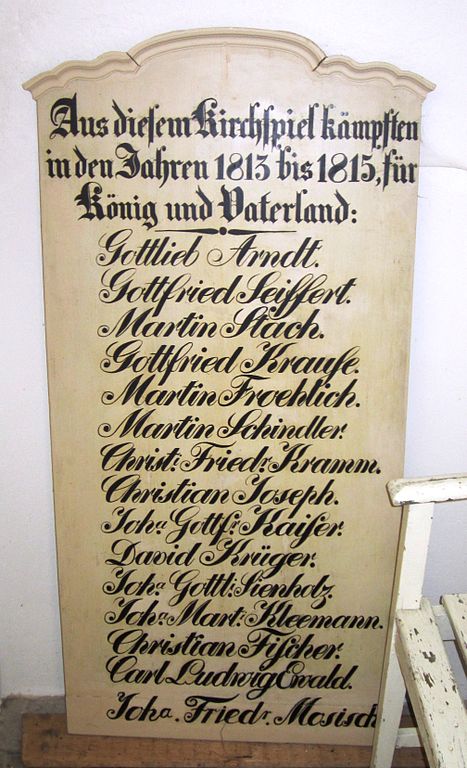 Aus diesem Kirchspiel kämpften
in den Jahren 1813 bis 1815, für
König und Vaterland:
Gottlieb Arndt.
Gottfried Seiffert.
Martin Stach.
Gottfried Krauſe.
Martin Froehlich.
Martin Schindler.
Christ: Friedr. Kramm.
Christian Joseph.
Joha Gottfr Kaiſer.
David Krüger.
Joha Gottl: Lienholz.
Joha Mart: Kleemann.
Christian Fiſcher.
Carl Ludwig Ewald.
Joha. Friedr. Mosisch